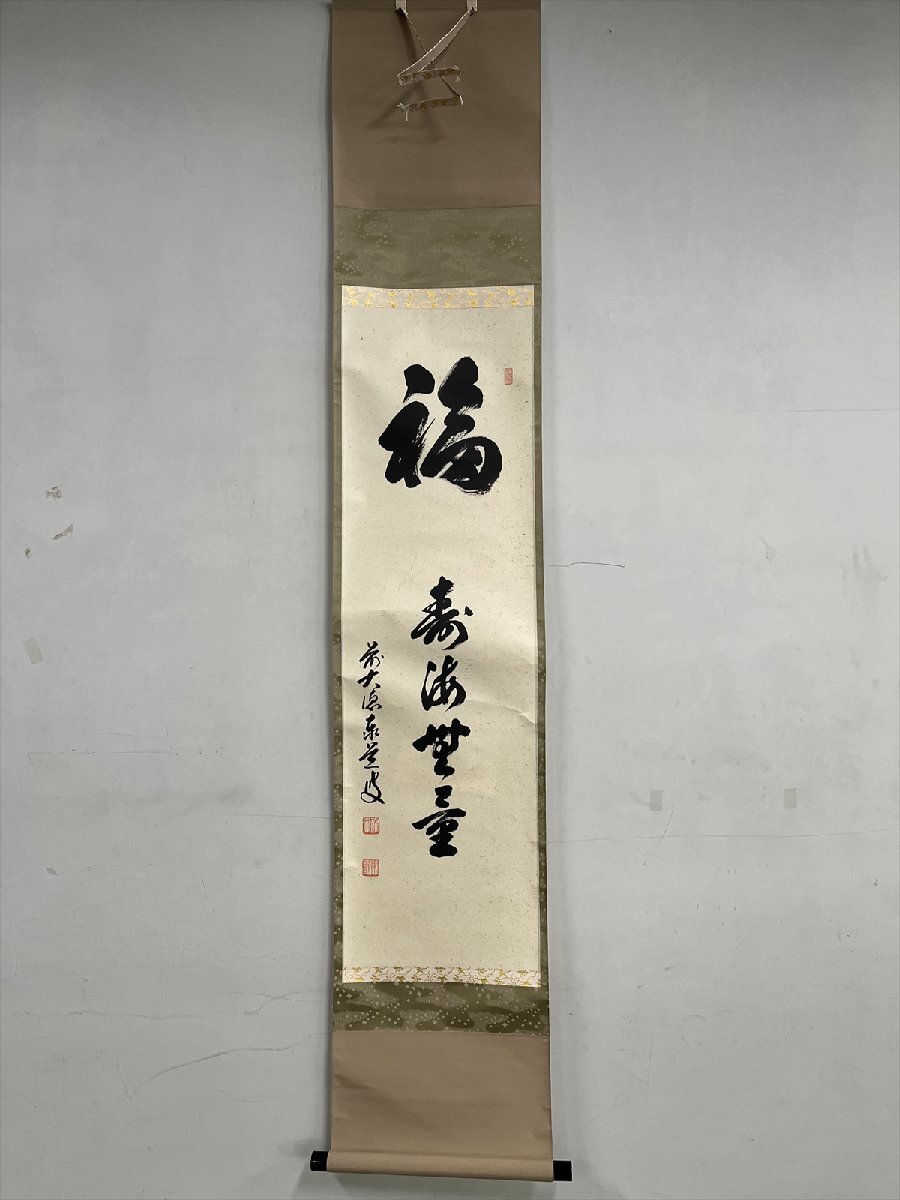 福
寿海無量
前大徳